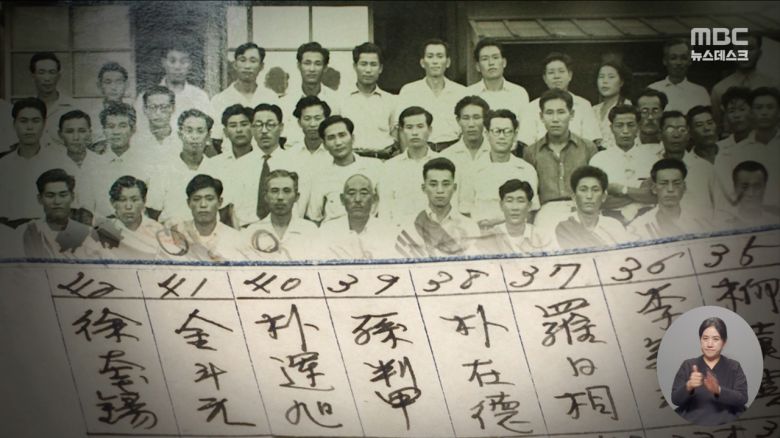 MBC
뉴스데스크
35
36 李
37 羅日相
38 朴在德
39 孫判甲
40 朴運旭
41 金斗元
42 徐